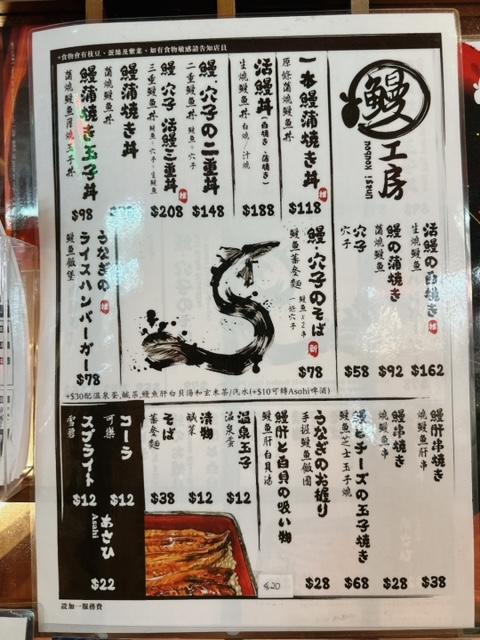 *食物會有枝豆、蛋絲及紫菜，如有食物敏感請告知店員
鰻
工房
Unagi Koubou
一本鰻蒲焼き丼
原條蒲燒鰻魚丼
$118
活鰻丼(白焼き/蒲焼き)
生燒鰻魚丼 白燒/汁燒
$188
鰻・穴子の二重丼
二重鰻魚丼 鰻魚・穴子
$148
鰻 穴子 活鰻三重丼
三重鰻魚丼 鰻魚・穴子・生鰻魚
$208
鰻蒲焼き丼
蒲燒鰻魚丼
鰻蒲焼き玉子丼
蒲燒鰻魚厚燒玉子丼
$98
活鰻の白焼き
生燒鰻魚
$162
鰻の蒲焼き
蒲燒鰻魚
$92
穴子
穴子
$58
鰻・穴子のそば
鰻魚蕎麥麵 鰻魚x2串 一條穴子
$78
うなぎの
ライスハンバーガー
鰻魚飯堡
$78
+$30配温泉蛋,鹹菜,鰻魚肝白貝湯和玄米茶/汽水(+$10可轉Asahi啤酒)
鰻肝串焼き
燒鰻魚肝串
$38
鰻串焼き
燒鰻魚串
$28
鰻とチーズの玉子焼き
鰻魚芝士玉子燒
$68
うなぎのお握り
手握鰻魚飯團
$28
鰻肝と白貝の吸い物
鰻魚肝白貝湯
$20
温泉玉子
温泉蛋
$12
漬物
鹹菜
$12
そば
蕎麥麵
$38
コーラ
可樂
$12
スプライト
雪碧
$12
あさひ
Asahi
$22
設加一服務費